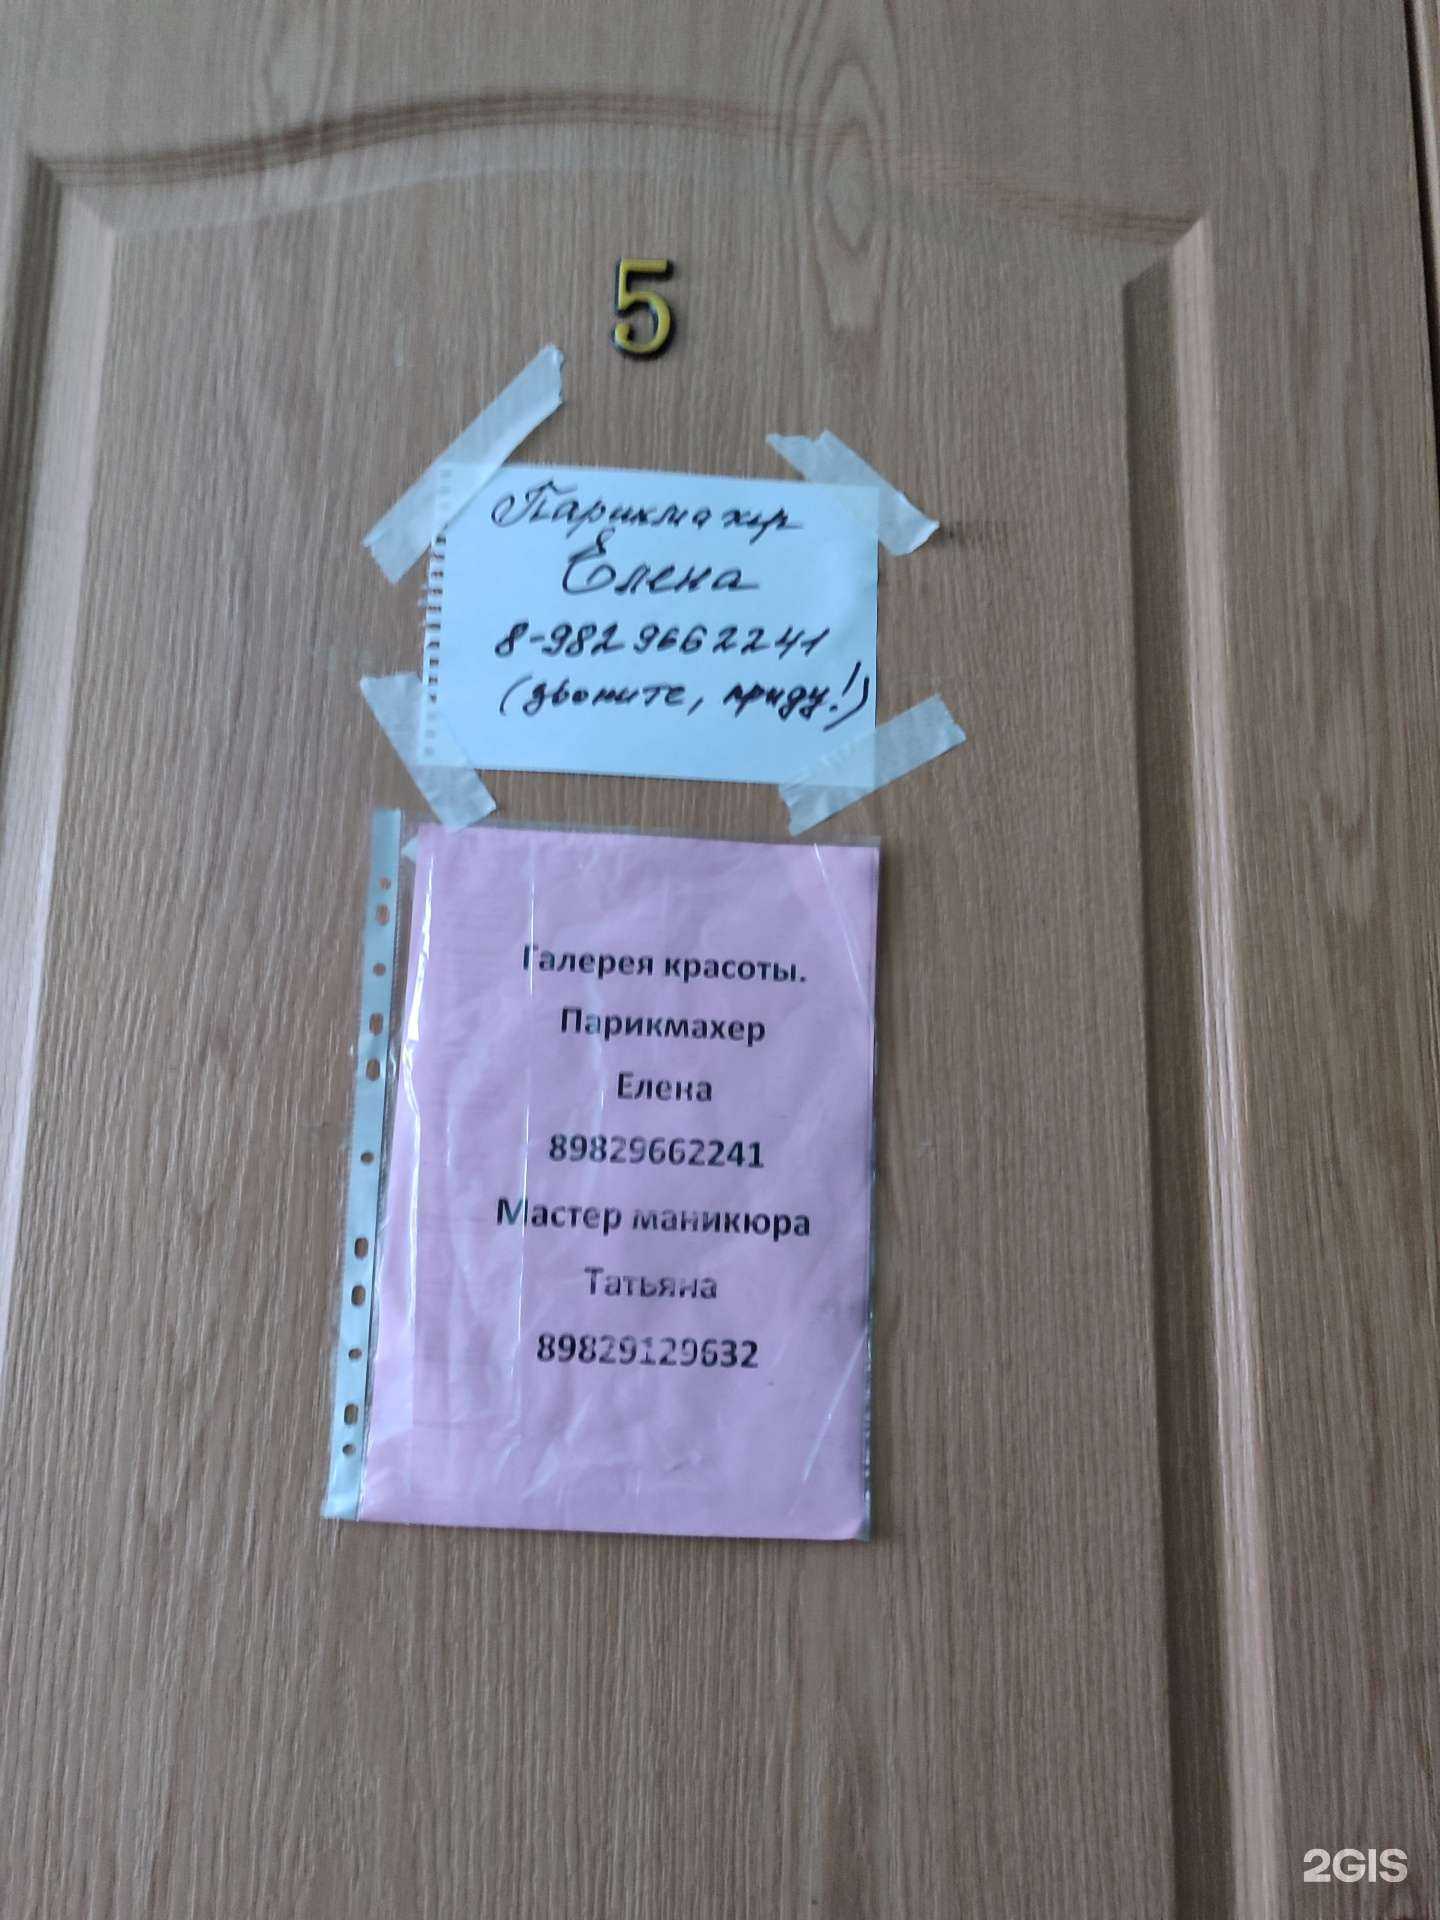 5
Парикмахер
Елена
8-982 966 22 41
(звоните, приду!)
Галерея красоты.
Парикмахер
Елена
89829662241
Мастер маникюра
Татьяна
89829129632
2GIS